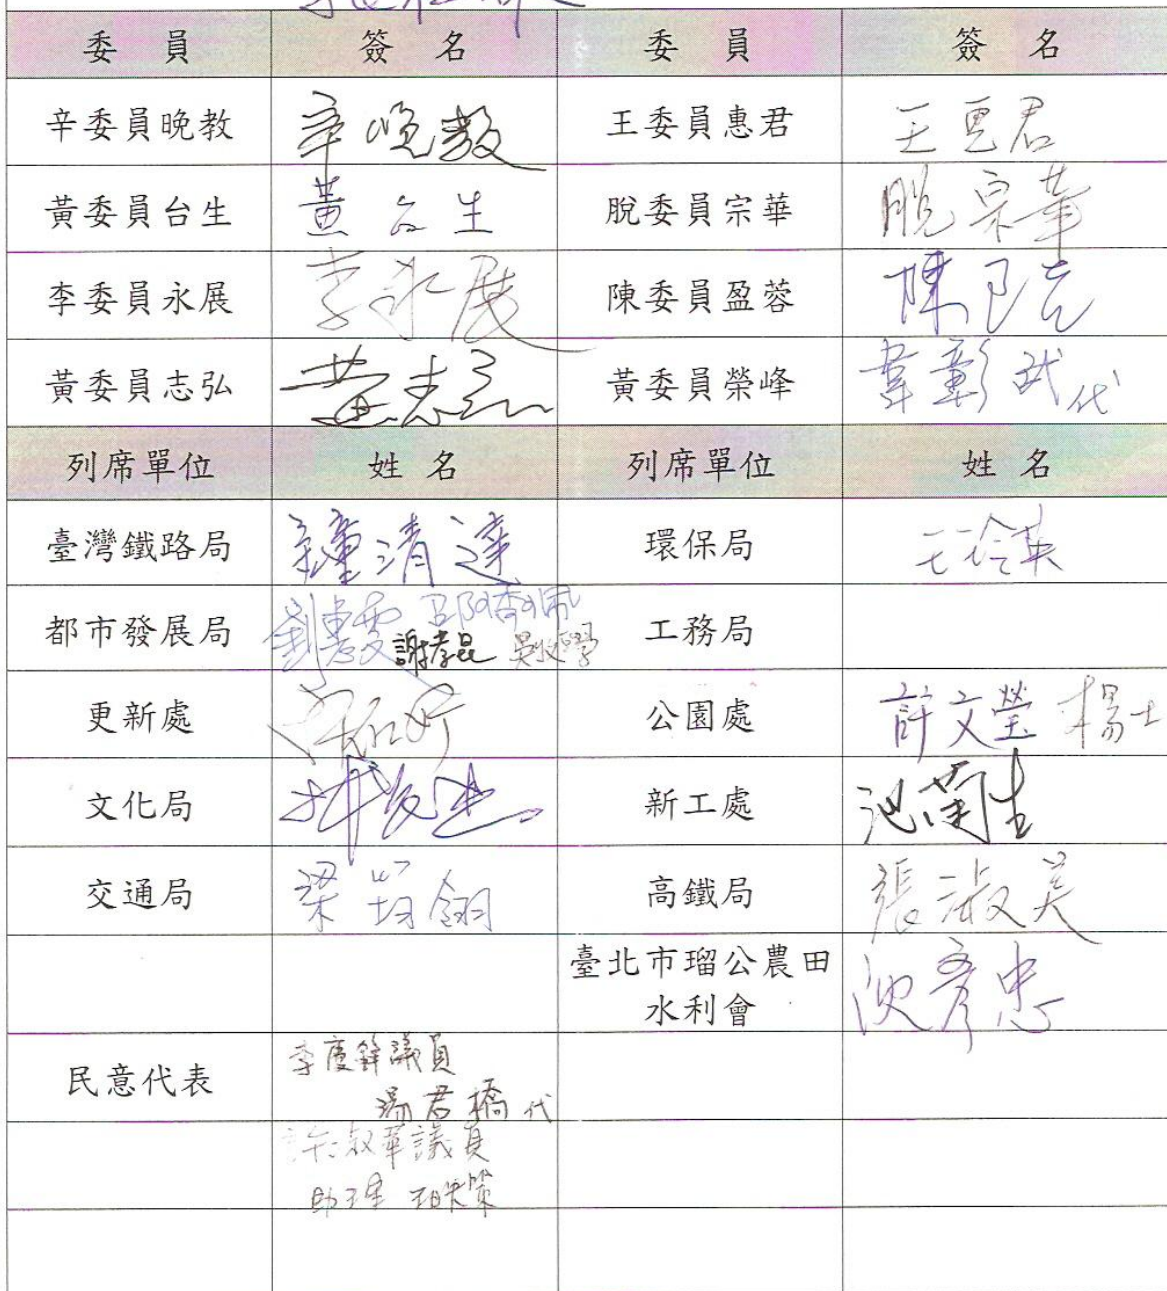 委員 簽名 委員 簽名
辛委員晚教 辛晚教 王委員惠君 王惠君
黃委員台生 黃台生 脫委員宗華 脫宗華
李委員永展 李永展 陳委員盈蓉 陳
黃委員志弘 黃志弘 黃委員榮峰 韋彰武代
列席單位 姓名 列席單位 姓名
臺灣鐵路局 鍾清達 環保局 王玲英
都市發展局 劉惠雯 邵琇珮 工務局
謝孝昆 吳
更新處 公園處 許文瑩 楊士
文化局 新工處 池蘭生
交通局 梁 高鐵局 張淑美
臺北市瑠公農田
水利會 彥忠
民意代表 李慶鋒議員
湯君橋代
許淑華議員
助理